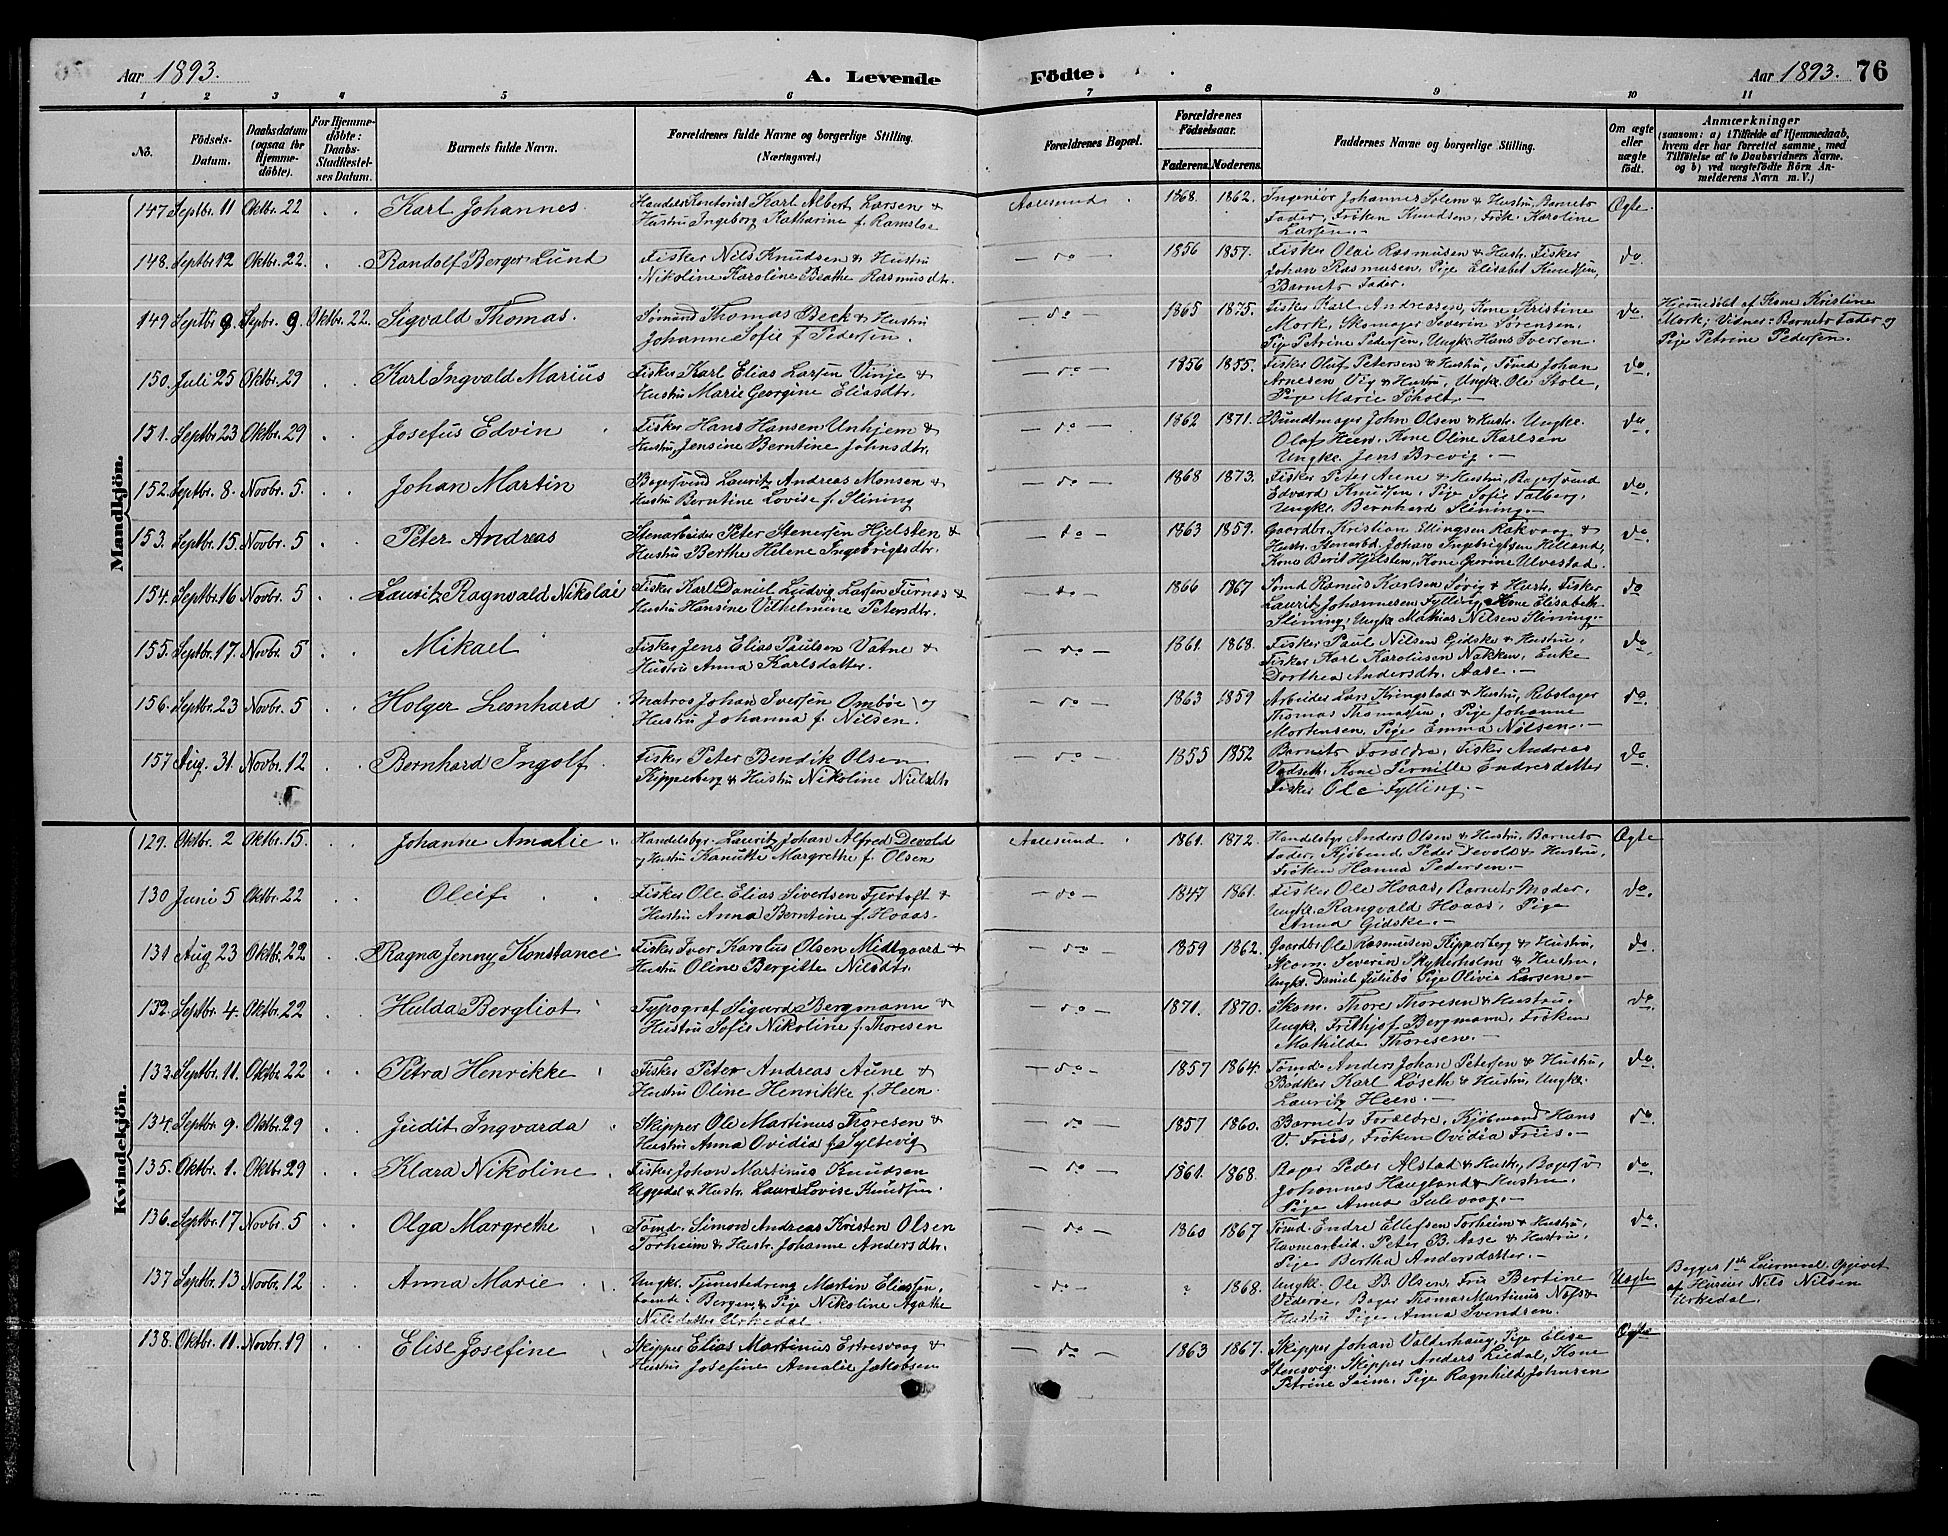 Aar 1893. A. Levende Födte. Aar 1893. 76
1 2 3 4 5 6 7 8 9 10 11
No. Födsels-Datum. Daabsdatum (ogsaa for Hjemme-döbte). For Hjemme-döbte: Daabs-Stadfæstel-ses Datum. Barnets fulde Navn. Forældrenes fulde Navne og borgerlige Stilling. (Næringsvei.) Forældrenes Bopæl. Forældrenes Födselsaar. Faderens. Moderens. Faddernes Navne og borgerlige Stilling. Om ægte eller uægte födt. Anmærkninger (saasom: a) i Tilfælde af Hjemmedaab, hvem der har forrettet samme, med Tilföielse af to Daabsvidners Navne, og b) ved uægtefödte Börn An-melderens Navn m. V.)
Mandkjön.
147 Septbr. 11 Oktbr. 22 Karl Johannes Handelskontorist Karl Albert Larsen & Aalesund 1868 1862. Ingeniør Johannes Solem & Hustru, Barnets Ægte
Hustru Ingeborg Katharine f. Ramsloe Fader, Frøken Knudsen, Frøk. Karoline
Larsen.
148. Septbr. 12 Oktbr. 22. Randolf Berger Lund Fisker Nils Knudsen & Hustru do 1856 1857. Fisker Olai Rasmussen & Hustr. Fisker do
Nikoline Karoline Beathe Rasmusdtr. Johan Rasmusen, Pige Elisabet Knudsen,
Barnets Fader.
149 Septbr 9. Septbr. 9 Oktbr. 22. Sigvald Thomas. Sømand Thomas Beck & Hustru do 1865 1875. Fisker Karl Andreasen, Kone Kristine do. Hjemmedøbt af Kone Kristine
Johanne Sofie f. Pedersen. Mork, Skomager Severin Sørensen, Mork; Vidner: Barnets Fader og
Pige Petrine Pedersen, Ungk. Hans Iversen. Pige Petrine Pedersen.
150. Juli 25 Oktbr. 29 Karl Ingvald Marius Fisker Karl Elias Larsen Vinje & do 1856 1855. Fisker Oluf Petersen & Hustru, Tømd Johan do
Hustru Marie Georgine Eliasdtr. Arnesen Vig & Hustru, Ungk. Ole Stole,
Pige Marie Scholt.
151. Septbr. 23 Oktbr. 29 Josefus Edvin Fisker Hans Hansen Unhjem & do 1862 1871. Bundtmager John Olsen & Hustr. Ungk. do
Hustru Jensine Berntine Johnsdtr. Olaf Heen, Kone Oline Karlsen
Ungk. Jens Brevig.
152. Septbr. 8. Novbr. 5. Johan Martin Bagersvend Lauritz Andreas Monsen & do 1868 1873. Fisker Peter Aune & Hustru, Bagersvend do.
Hustru Berntine Lovise f. Slining Edvard Knudsen, Pige Sofie Talberg,
Ungk. Bernhard Slining.
153. Septbr. 15. Novbr. 5 Peter Andreas Stenarbeider Peter Stenersen Hjelsten & do 1863 1859. Gaardbr. Kristian Ellingsen Rakvaag & do.
Hustru Berthe Helene Ingebrigtsdtr. Hustr. Stenarbd. Johan Ingebrigtsen Helland,
Kone Berit Hjelsten, Kone Gurine Ulvestad.
154. Septbr. 16 Novbr. 5 Lauritz Ragnvald Nikolai Fisker Karl Daniel Ludvig Larsen Furnes & do 1866 1867 Tømd Rasmus Karlsen Søvig & Hustr. Fisker do
Hustru Hansine Vilhelmine Petersdtr. Lauritz Johannesen Fylling, Kone Elisabeth
Slining, Ungk. Mathias Nilsen Slining.
155. Septbr. 17. Novbr. 5 Mikael Fisker Jens Elias Paulsen Vatne & do 1861. 1868. Fisker Paul Nilsen Gidske & Hustru, do
Hustru Anna Karlsdatter. Fisker Karl Karolusen Nakken, Enke
Dorthea Andersdtr. Aase.
156. Septbr. 23 Novbr. 5 Holger Leonhard Matros Johan Iversen Ombøe og do 1863 1859 Arbeider Lars Kringstad & Hustru, Rebslager do
Hustru Johanna f. Nilsen. Thomas Thomassen, Pige Johanne
Mortensen, Pige Emma Nilsen.
157 Aug. 31. Novbr. 12 Bernhard Ingolf Fisker Peter Bendik Olsen do 1855 1852 Barnets Forældre, Fisker Andreas do
Flipperberg & Hustru Nikoline Nielsdtr. Vadseth, Kone Pernille Endresdatter
Fisker Ole Fylling.
Kvindekjön.
129. Oktbr. 2 Oktbr. 15. Johanne Amalie Handelsbgr. Lauritz Johan Alfred Devold Aalesund 1861. 1872. Handelsbgr Anders Olsen & Hustru, Barnets Ægte
og Hustru Kanutte Margrethe f. Olsen Fader, Kjøbmd. Peder Devold & Hustru,
Frøken Hanna Pedersen.
130 Juni 5 Oktbr. 22 Oleif Fisker Ole Elias Sivertsen Fjertoft & do 1847 1861. Fisker Ole Hoaas, Barnets Moder, do.
Hustru Anna Berntine f. Hoaas. Ungk. Rangvald Hoaas, Pige
Anna Gidske.
131 Aug 23 Oktbr. 22 Ragna Jenny Konstance Fisker Iver Karolus Olsen Midtgaard & do 1859 1862. Gaardbr Ole Rasmusen Flipperberg & Hustru, do.
Hustru Oline Bergitte Nilsdtr. Skom. Severin Skytterholm & Hustru,
Ungk. Daniel Julibø, Pige Olivia Larsen.
132. Septbr. 4. Oktbr. 22 Hulda Bergliot Typograf Sigurd Bergmann & do 1871. 1870. Skom. Thore Thoresen & Hustru, do
Hustru Sofie Nikoline f. Thoresen Ungk. Frithjof Bergmann, Frøken
Mathilde Thoresen.
133. Septbr. 11. Oktbr. 22 Petra Henrikke Fisker Peter Andreas Aune & do 1857 1864. Tømd. Anders Johan Petersen & Hustru, do
Hustru Oline Henrikke f. Heen Bødker Karl Løseth & Hustru, Ungk.
Lauritz Heen.
134. Septbr. 9. Oktbr. 29 Judit Ingvarda Skipper Ole Martinus Thoresen & do 1857 1860. Barnets Forældre, Kjøbmand Hans do.
Hustru Anna Ovidia f. Syltevig V. Friis, Frøken Ovidia Friis.
135. Oktbr. 1. Oktbr. 29 Klara Nikoline Fisker Johan Martinus Knudsen do 1861. 1868. Bager Peder Alstad & Hustr, Bagersv do
Uggedal & Hustr. Laura Lovise Knudsen. Johannes Haugland & Hustru
Pige Anna Sulevaag.
136. Septbr. 17 Novbr. 5 Olga Margrethe Tømd. Simon Andreas Kristen Olsen do 1860 1867 Tømd. Endre Ellefsen Torheim & Hustru, do.
Torheim & Hustr. Johanne Andersdtr. Havnearbeid. Peter B. Aase & Hustru,
Pige Bertha Andersdatter.
137 Septbr. 13 Novbr. 12 Anna Marie Ungk. Tjenestedreng Martin Eliassen, do ? 1868. Ungk. Ole B. Olsen, Fru Bertine Uægte Begges 1ste Leiermaal. Opgivet
Bergen, & Pige Nikoline Agathe Viderøe, Bager Thomas Martinus Næss & af Husmd Nils Nilsen
Nilsdatter Urkedal. Hustru Pige Anna Svendsen. Urkedal.
138. Oktbr. 11. Novbr. 19 Elise Josefine Skipper Elias Martinus Ertresvaag & do 1863 1867. Skipper Johan Valderhaug, Pige Elise Ægte
Hustru Josefine Amalie Jakobsen Stensvig, Skipper Anders Liedal, Kone
Petrine Seim, Pige Ragnhild Johnsen